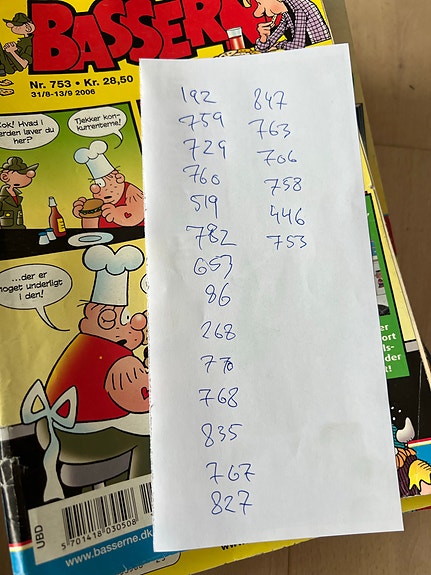 BASSERN
Nr. 753 • Kr. 28,50
31/8-13/9 2006
Tjekker kon-
kurrenterne!
...der er
noget underligt
i den!
192
759
729
760
519
782
657
86
268
770
768
835
767
827
847
763
706
758
446
753
UBD
5 701418 030508
www.basserne.dk